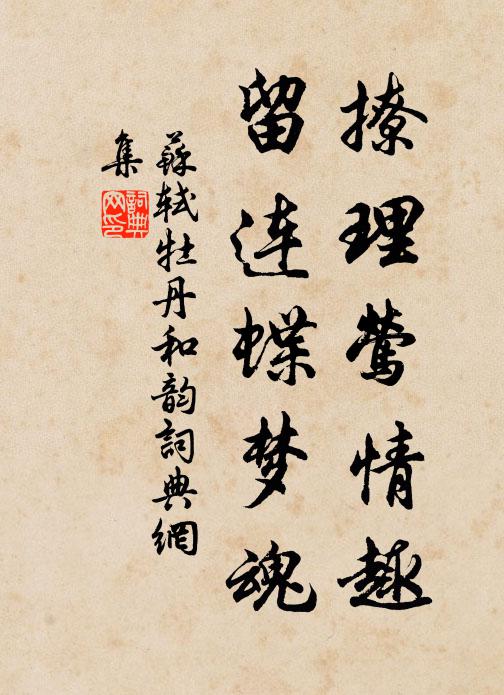 撩理莺情趣
留连蝶梦魂
蘇轼牡丹和韵詞典網
集
詞典
网印